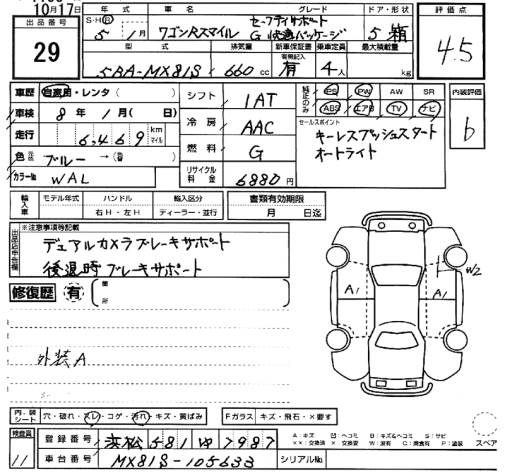 10月17日
出品番号
29
年式 車名 グレード ドア・形状
S・H・R 5年 1月 ワゴンRスマイル セーフティサポート G 快適パッケージ 5 箱
評価点
4.5
型式 排気量 新車保証書 有無記入 乗車定員 最大積載量
5BA-MX81S 660cc 有 4人 kg
車歴 自家用・レンタ( )
車検 8年 1月( 日)
走行 6,469 km マイル
色 ブルー →( )
カラーNo WAL
シフト 1AT
冷房 AAC
燃料 G
リサイクル料金 6880円
純正のみ PS PW AW SR
ABS エアB TV ナビ
セールスポイント
キーレスプッシュスタート
オートライト
内装評価
b
輸入車 モデル年式 ハンドル 輸入区分
年 右H・左H ディーラー・並行
書類有効期限
月 日迄
※注意事項等記載
デュアルカメラブレーキサポート
後退時ブレーキサポート
修復歴 有 箇所
外装A
A1 A1 W2
内装シート 穴・破れ・スレ・コゲ・汚れ・キズ・黄ばみ
Fガラス キズ・飛石・×要す
検査員
11
登録番号 浜松 581 ゆ 7987
車台番号 MX81S-105633
シリアルNo.
A:キズ U:ヘコミ B:キズ&ヘコミ S:サビ
××:交換済 ×:交換要 W:波有 C:腐食有 P:塗装
スペア